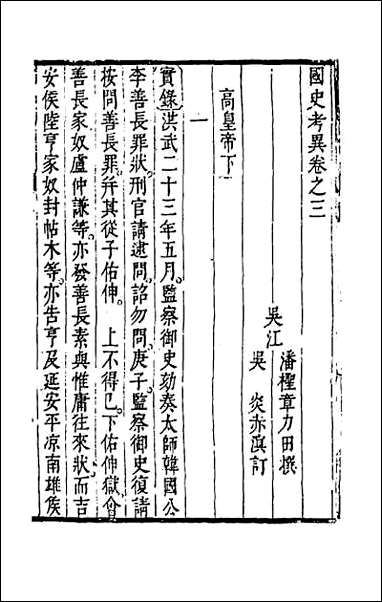 國史考異卷之三
吳江
潘檉章力田撰
吳炎赤溟訂
高皇帝下
一
實錄洪武二十三年五月。監察御史劾奏太師韓國公
李善長罪狀。刑官請逮問。詔勿問。庚子。監察御史復請
按問善長罪。并其從子佑伸。上不得已。下佑伸獄。會
善長家奴盧仲謙等。亦發善長素與惟庸往來狀。而吉
安侯陸亨家奴封帖木等。亦告亨及延安平凉南雄侯